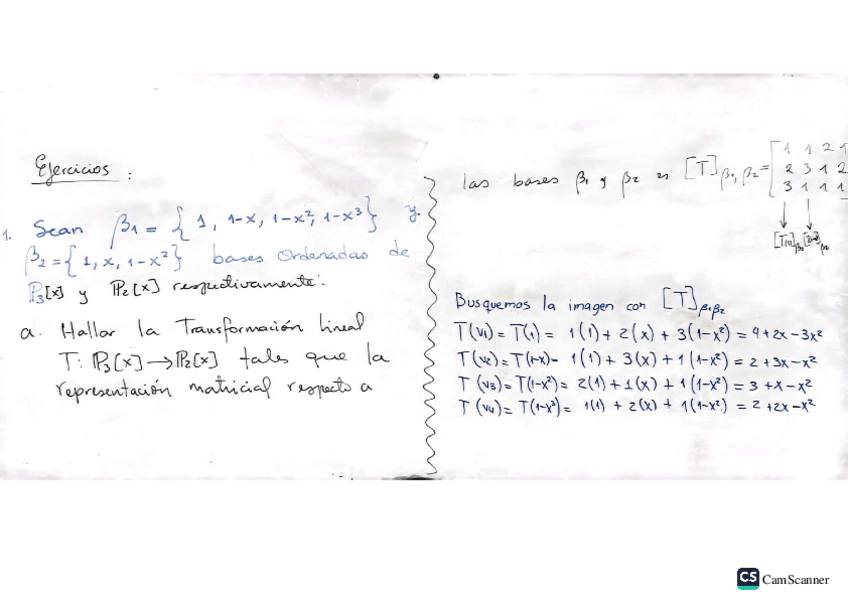 Ejercicios :
1. Sean β1 = { 1, 1-x, 1-x², 1-x³ } y
β2 = { 1, x, 1-x² } bases Ordenadas de
P3[x] y P2[x] respectivamente:
a. Hallar la Transformación Lineal
T: P3[x] → P2[x] tales que la
representación matricial respecto a
las bases β1 y β2 es [T]β1, β2 = [ 1 1 2 1
2 3 1 2
3 1 1 1
Busquemos la imagen con [T]β1β2
T(v1) = T(1) = 1(1) + 2(x) + 3(1-x²) = 4+2x-3x²
T(v2) = T(1-x) = 1(1) + 3(x) + 1(1-x²) = 2+3x-x²
T(v3) = T(1-x²) = 2(1) + 1(x) + 1(1-x²) = 3+x-x²
T(v4) = T(1-x³) = 1(1) + 2(x) + 1(1-x²) = 2+2x-x²
CS CamScanner